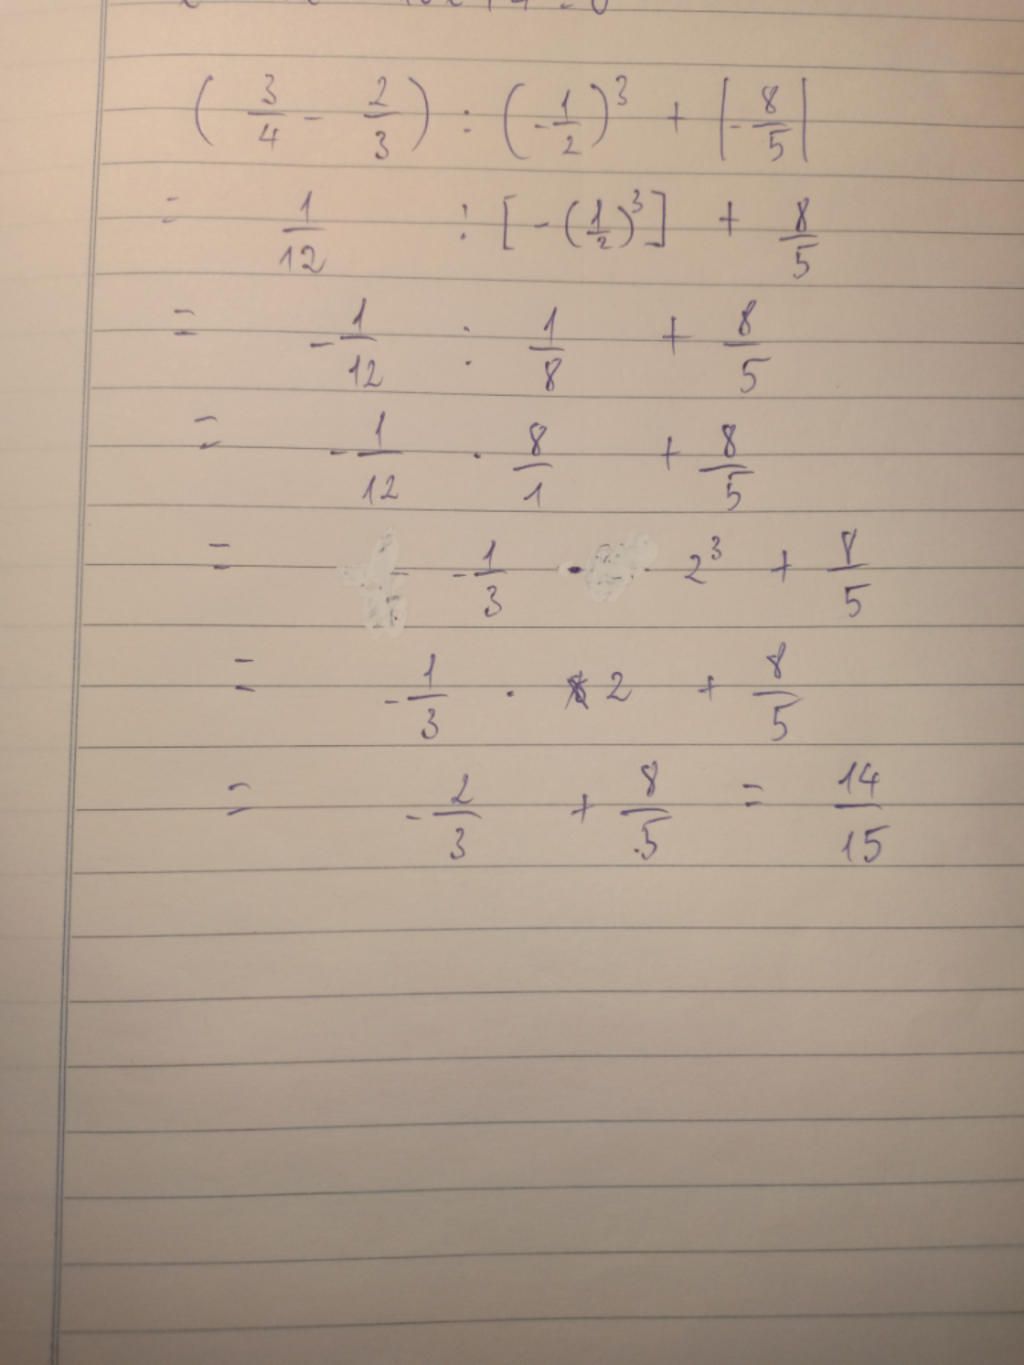 ( 3/4 - 2/3 ) : ( - 1/2 )³ + | - 8/5 |
= 1/12 : [ - ( 1/2 )³ ] + 8/5
= - 1/12 : 1/8 + 8/5
= - 1/12 · 8/1 + 8/5
= - 1/3 · 2³ + 8/5
= - 1/3 · 2 + 8/5
= - 2/3 + 8/5 = 14/15